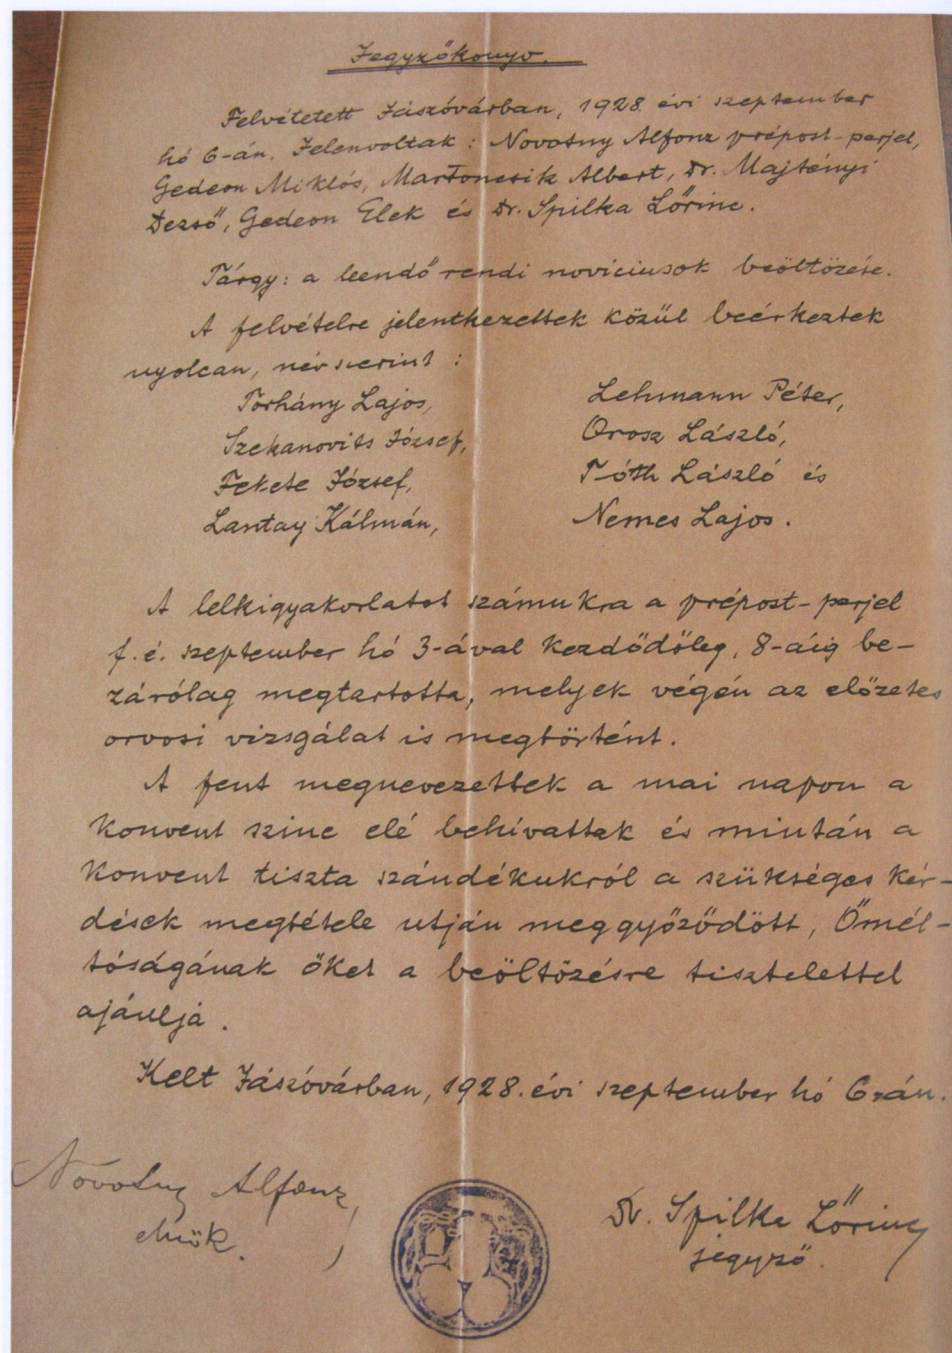 Jegyzőkönyv.
Felvétetett Jászóvárban, 1928. évi szeptember
hó 6-án. Jelenvoltak: Novotny Alfonz prépost-perjel,
Gedeon Miklós, Martoncsik Albert, Dr. Majtényi
Dezső, Gedeon Elek és Dr. Spilka Lőrinc.
Tárgy: a leendő rendi noviciusok beöltözése.
A felvételre jelentkezettek közül beérkeztek
nyolcan, név szerint:
Torhány Lajos,
Szekanovits József,
Fekete József,
Lantay Kálmán,
Lehmann Péter,
Orosz László,
Tóth László és
Nemes Lajos.
A lelkigyakorlatot számukra a prépost-perjel
f. é. szeptember hó 3-ával kezdődőleg, 8-áig be-
zárólag megtartotta, melyek végén az előzetes
orvosi vizsgálat is megtörtént.
A fent megnevezettek a mai napon a
konvent szine elé behívattak és miután a
konvent tiszta szándékukról a szükséges kér-
dések megtétele utján meggyőződött, Őmél-
tóságának őket a beöltözésre tisztelettel
ajánlja.
Kelt Jászóvárban, 1928. évi szeptember hó 6-án.
Novotny Alfonz,
elnök.
Dr. Spilka Lőrinc
jegyző.